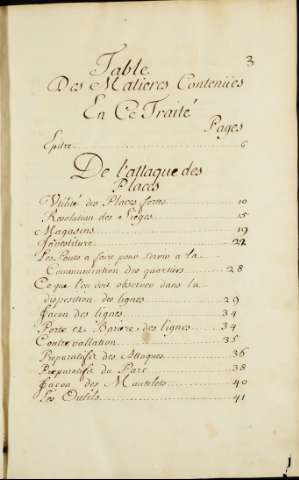 3
Table
Des Matieres Contenües
En Ce Traité
Pages
Epitre 6
De l'attaque des
Places
Utilité des Places fortes 10
Resolution des Sieges 15
Magasins 19
Investiture 22
Les Ponts a faire pour servir a la
Communication des quartiers 28
Ce que l'on doit observer dans la
disposition des lignes 29
façon des lignes 34
Porte et Bariere des lignes 34
Contrevallation 35
Preparatifs des Attaques 36
Preparatifs du Parc 38
façon des Mantelets 40
Les Outils 41